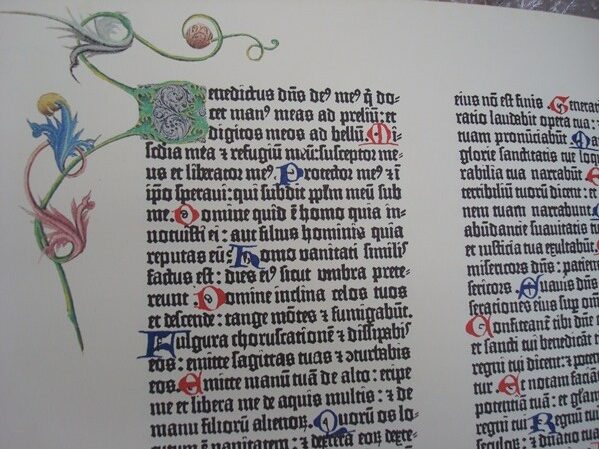 Benedictus dn̄s de⁹ me⁹ q̄ do-
cet man⁹ meas ad preliū: et
digitos meos ad bellū. Mi-
s͞c͞dia mea ⁊ refugiū meū: susceptor me-
us et liberator me⁹. Protector me⁹ ⁊ ī
ip̄o speraui: qui subdit pp̄lm meū sub
me. Domine quid ē homo quia in-
notuisti ei: aut filius hominis quia
reputas eū. Homo vanitati similis
factus est: dies ei⁹ sicut umbra prete-
reunt. Domine inclina celos tuos
et descende: tange mōtes ⁊ fumigabūt.
Fulgura choruscationē ⁊ dissipabis
eos: emitte sagittas tuas ⁊ ꝯturbabis
eos. Emitte manū tuā de alto: eripe
me et libera me de aquis multis: ⁊ de
manu filiorū alienoꝝ. Quorū os lo-
cutum ē vanitatem: ⁊ dextera eoꝝ dexte-
eius nō est finis. Generati
ratio laudabit opera tua:
tuam pronūciabūt. Ma
glorie sanctitatis tue loqu
rabilia tua narrabūt. E
terribiliū tuorū dicent: et
nem tuam narrabunt.
abūdancie suauitatis tu
et iusticia tua exultabūt.
misericors dn̄s: patiens
sericors. Suauis dn̄s
serationes eius sup om̄
Confiteant tibi dn̄e
et sancti tui benedicāt t
regni tui dicent: et poten
tur. Et notam faciāt
potentiā tuā: et glam
regni tui. Regnū tuū
seculoꝝ: ⁊ dn̄atio tua